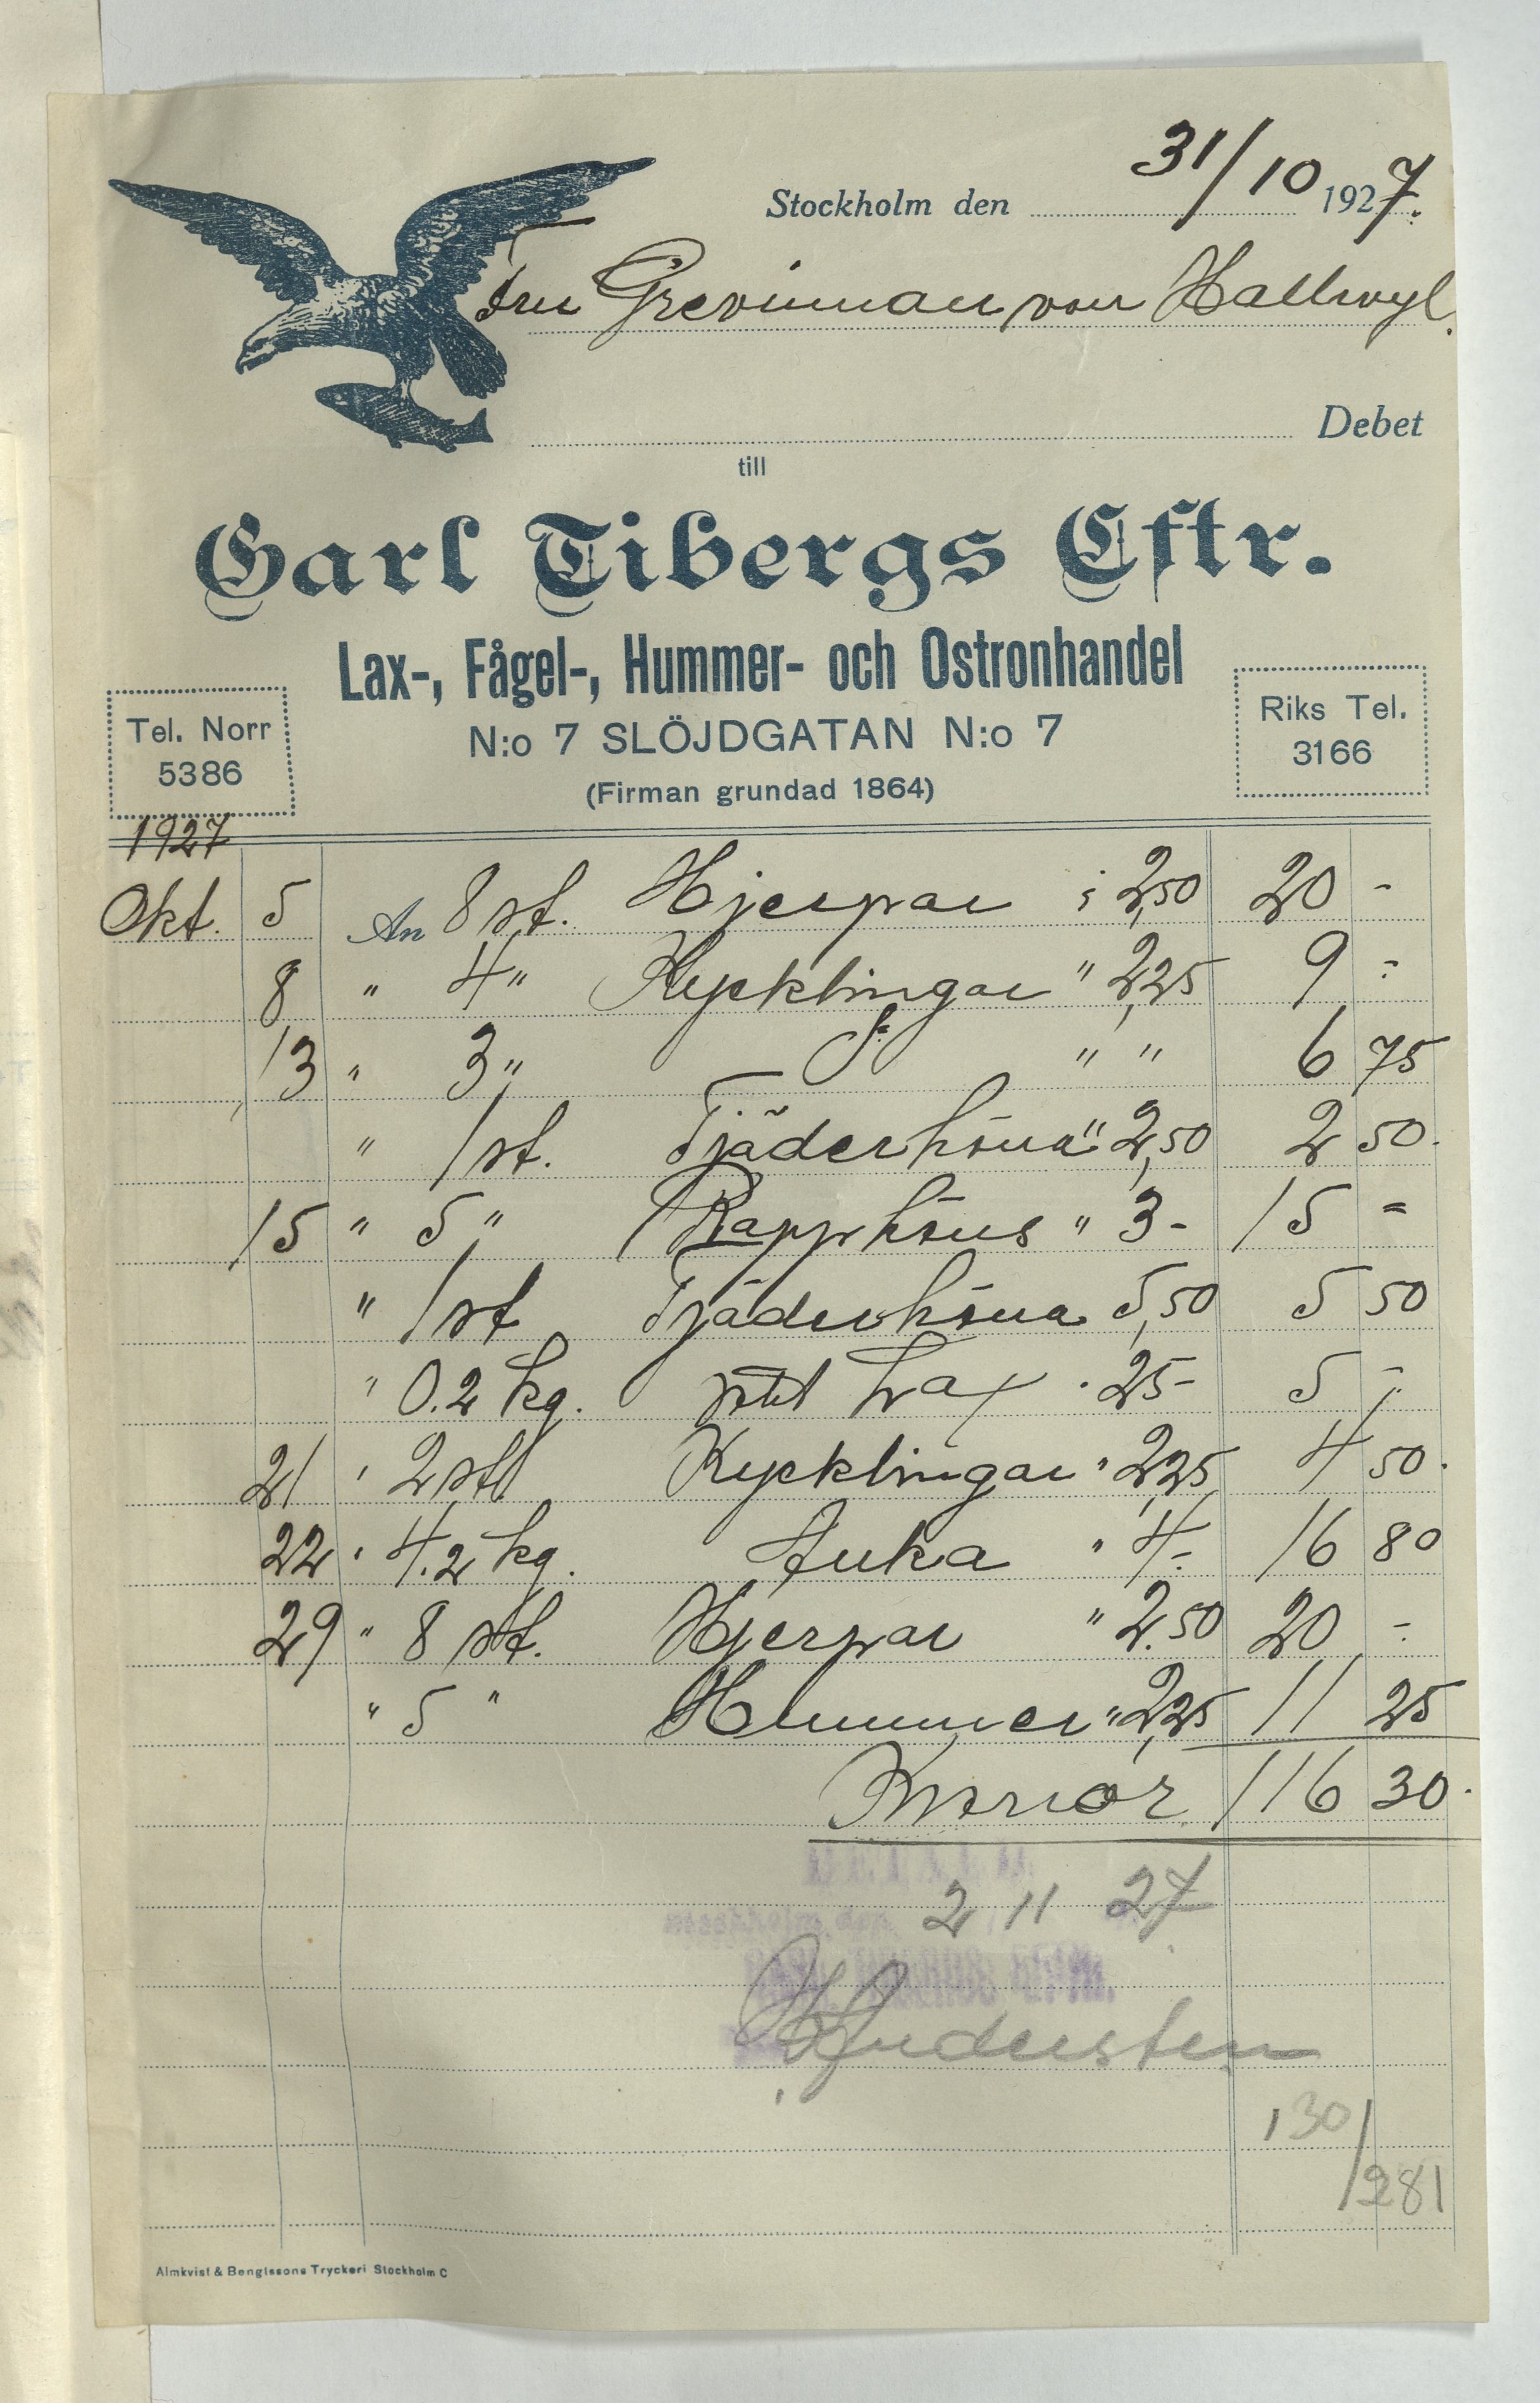 Stockholm den 31/10 1927.
Fru Grevinnan von Hallwyl.
Debet
till
Carl Tibergs Eftr.
Lax-, Fågel-, Hummer- och Ostronhandel
Tel. Norr 5386
N:o 7 SLÖJDGATAN N:o 7
Riks Tel. 3166
(Firman grundad 1864)
1927
Okt. 5 An 8 st. Hjerpar à 2,50 20 -
8 " 4 " Kycklingar " 2,25 9 -
13 " 3 " d:o " " 6 75
" 1 st. Tjäderhöna " 2,50 2 50
15 " 5 " Rapphöns " 3- 15 =
" 1 st Tjäderhöna 5,50 5 50
" 0.2 kg. rökt Lax " 25- 5 -
21 " 2 st Kycklingar " 2,25 4 50
22 " 4.2 kg. Anka " 4- 16 80
29 " 8 st. Hjerpar " 2.50 20 -
" 5 " Hummer " 2,25 11 25
Kronor 116 30
Stockholm den 2 11 27
130/281
Almkvist & Bengtssons Tryckeri Stockholm C